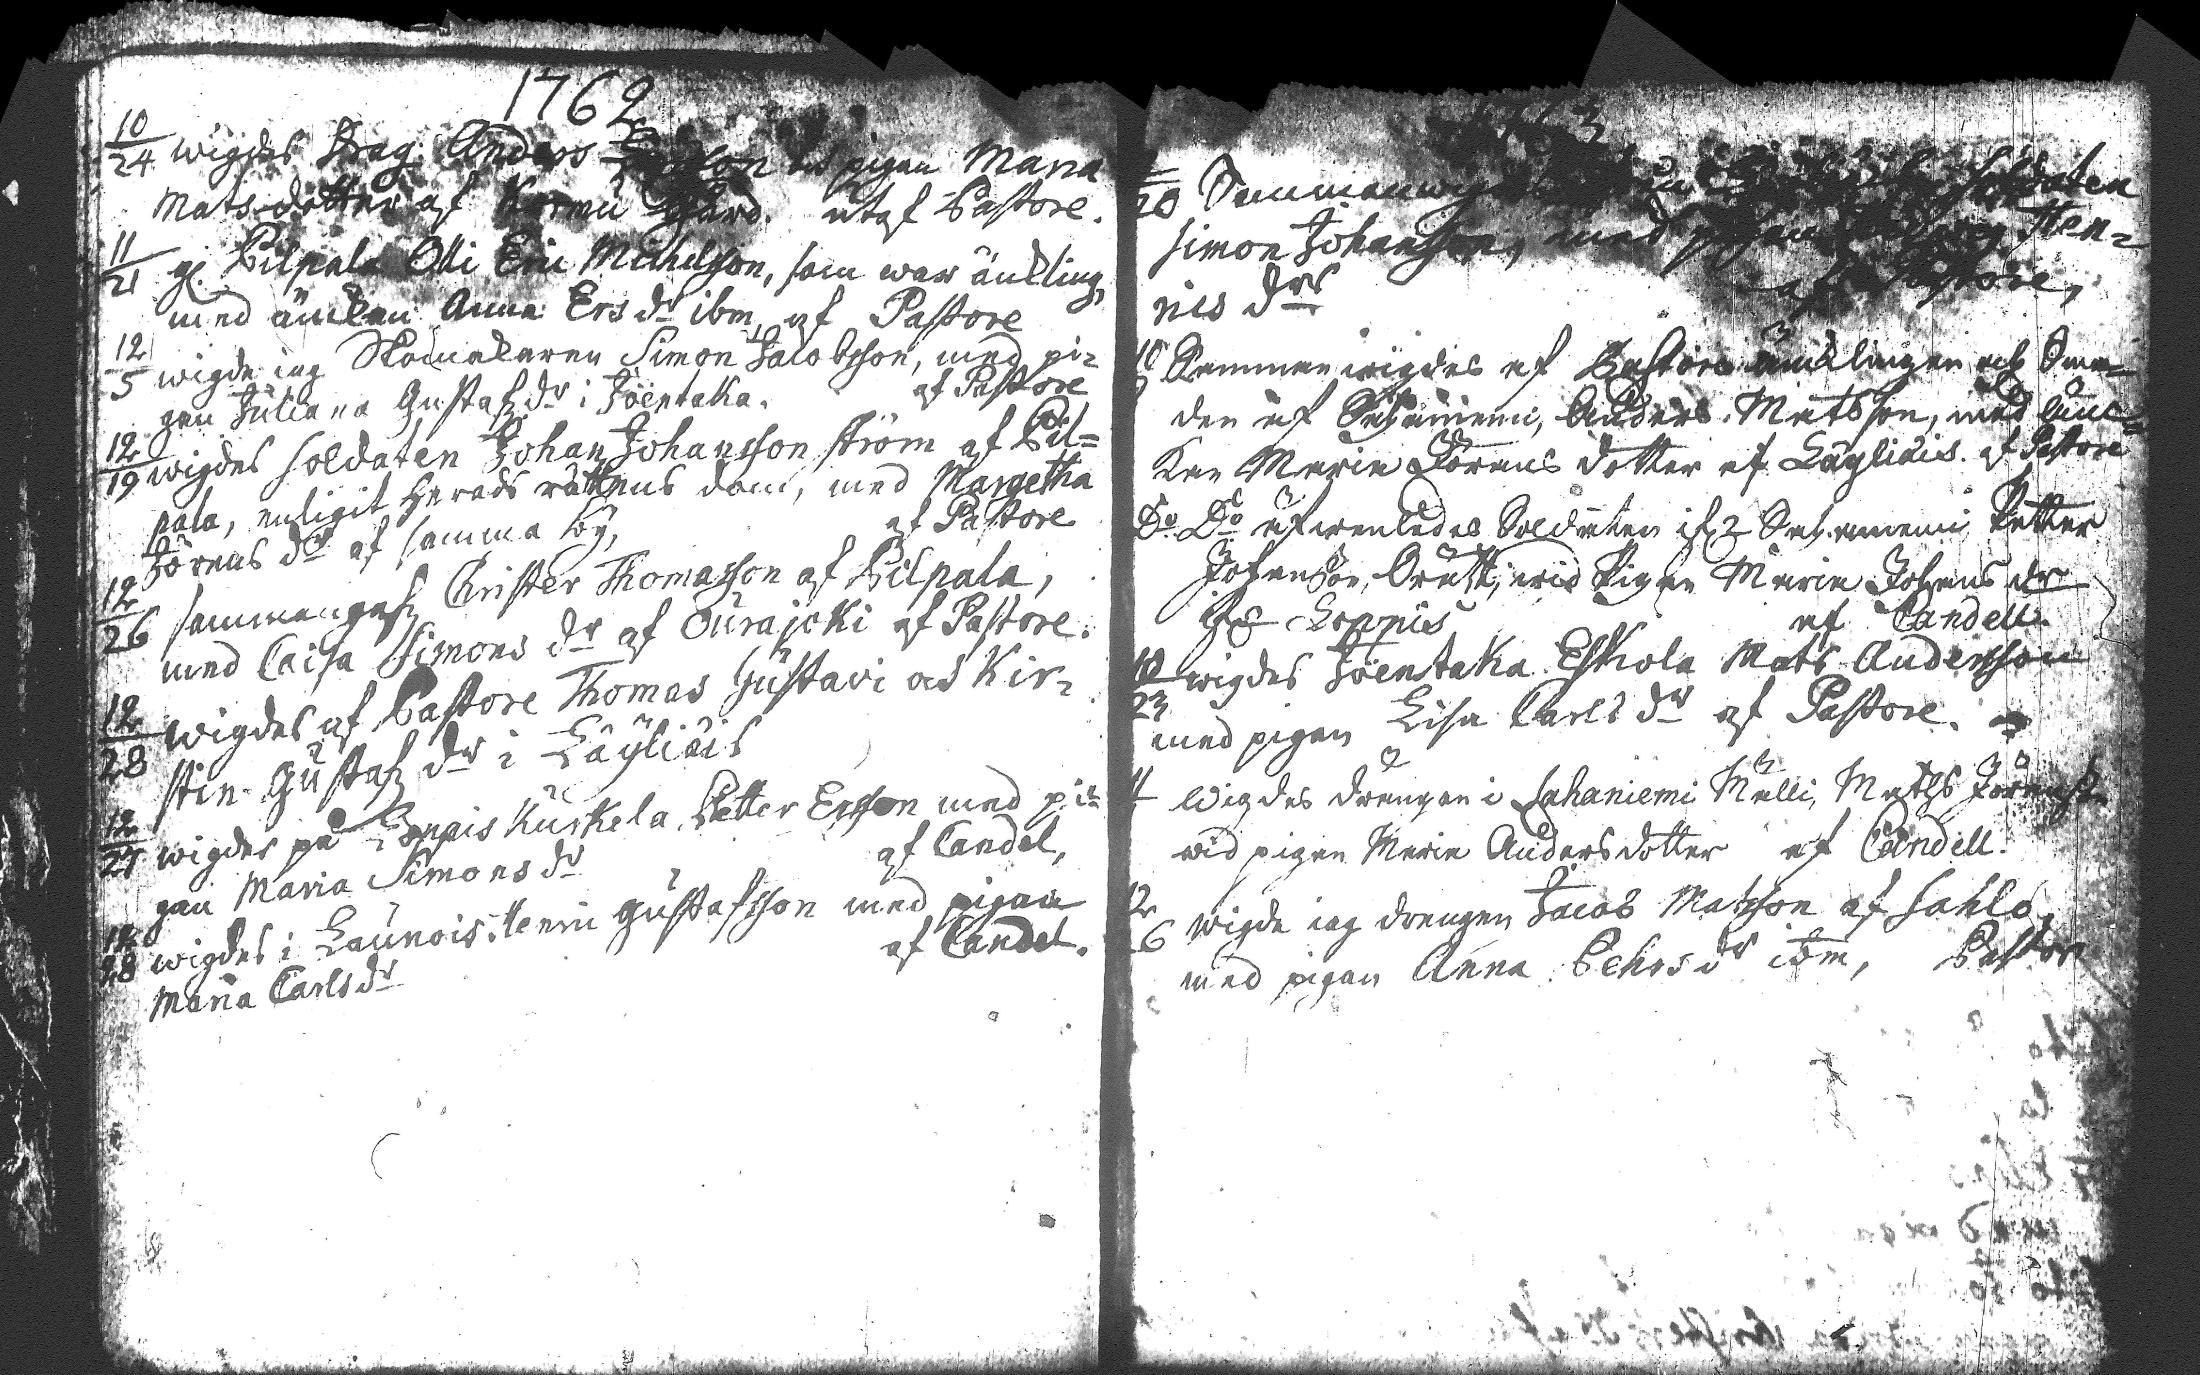 1762
10/24 wigdes Drag. Anders pigan Maria
Matsdotter af Kormu gård. utaf Pastore.
11/21 gl. Pilpala Olli Eric Michelsson, som war änkling,
med änkan Anna Ers dr ibm, af Pastore
12/5 wigde iag Skomakaren Simon Jacobsson, med pi-
gan Juliana Gustafz dr i Joentaka. af Pastore
12/19 wigdes soldaten Johan Johansson ström af Pil-
pala, enligit Herads rättens dom, med Margetha
Jörens dr af samma by, af Pastore
12/26 sammangafz Christer Thomasson af Pilpala,
med Caisa Simons dr af Ourajoki af Pastore.
12/28 wigdes af Pastore Thomas Gustavi och Kir-
stin Gustafz dr i Läyliäis
12/27 wigdes på Loppis Kuskela Petter Ersson med pi-
gan Maria Simons dr af Candel,
12/28 wigdes i Launois Henric Gustafsson med pigan
Maria Carls dr af Candel.
20 Sammanwig soldaten
Simon Johansson, med pigan Hen-
ries dr af Pastore,
10 Sammanwigdes af Pastore änklingen och
den af Sahaniemi, Anders Matsson, med än-
kan Maria Jörans dotter af Läyliäis. af Pastore
Do Do afwenledes Soldaten ifr Sahaniemi Petter
Johansson, wid Pigan Maria Johans dr
ifr Loppis af Candell.
10/23 wigdes Joentaka Eskola Mats Andersson
med pigan Lisa Carls dr af Pastore.
4 Wigdes drengen i Sahaniemi Mälli, Mattss Jöransson
wid pigan Maria Andersdotter af Candell.
12/6 Wigde iag drengen Jacob Matsson af Sahlo,
med pigan Anna Pehrs dr ibm, Pastor